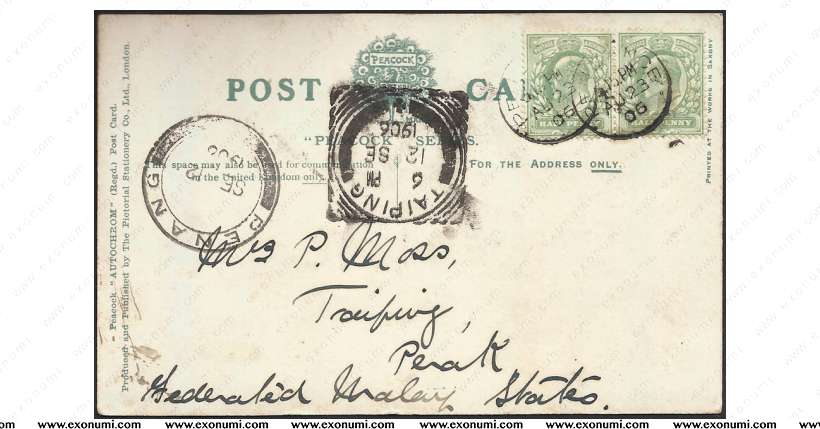 PEACOCK
POST CARD.
"PEACOCK" SERIES.
This space may also be used for communication
in the United Kingdom only.
FOR THE ADDRESS ONLY.
"Peacock "AUTOCHROM" (Regd.) Post Card.
Produced and Published by The Pictorial Stationery Co., Ltd., London.
PRINTED AT THE WORKS IN SAXONY
HALFPENNY
PENANG
SE
TAIPING
6 PM
12 SE
1906
Mrs P. Moss,
Taiping,
Perak
Federated Malay States.
www.exonumi.com www.exonumi.com www.exonumi.com www.exonumi.com www.exonumi.com